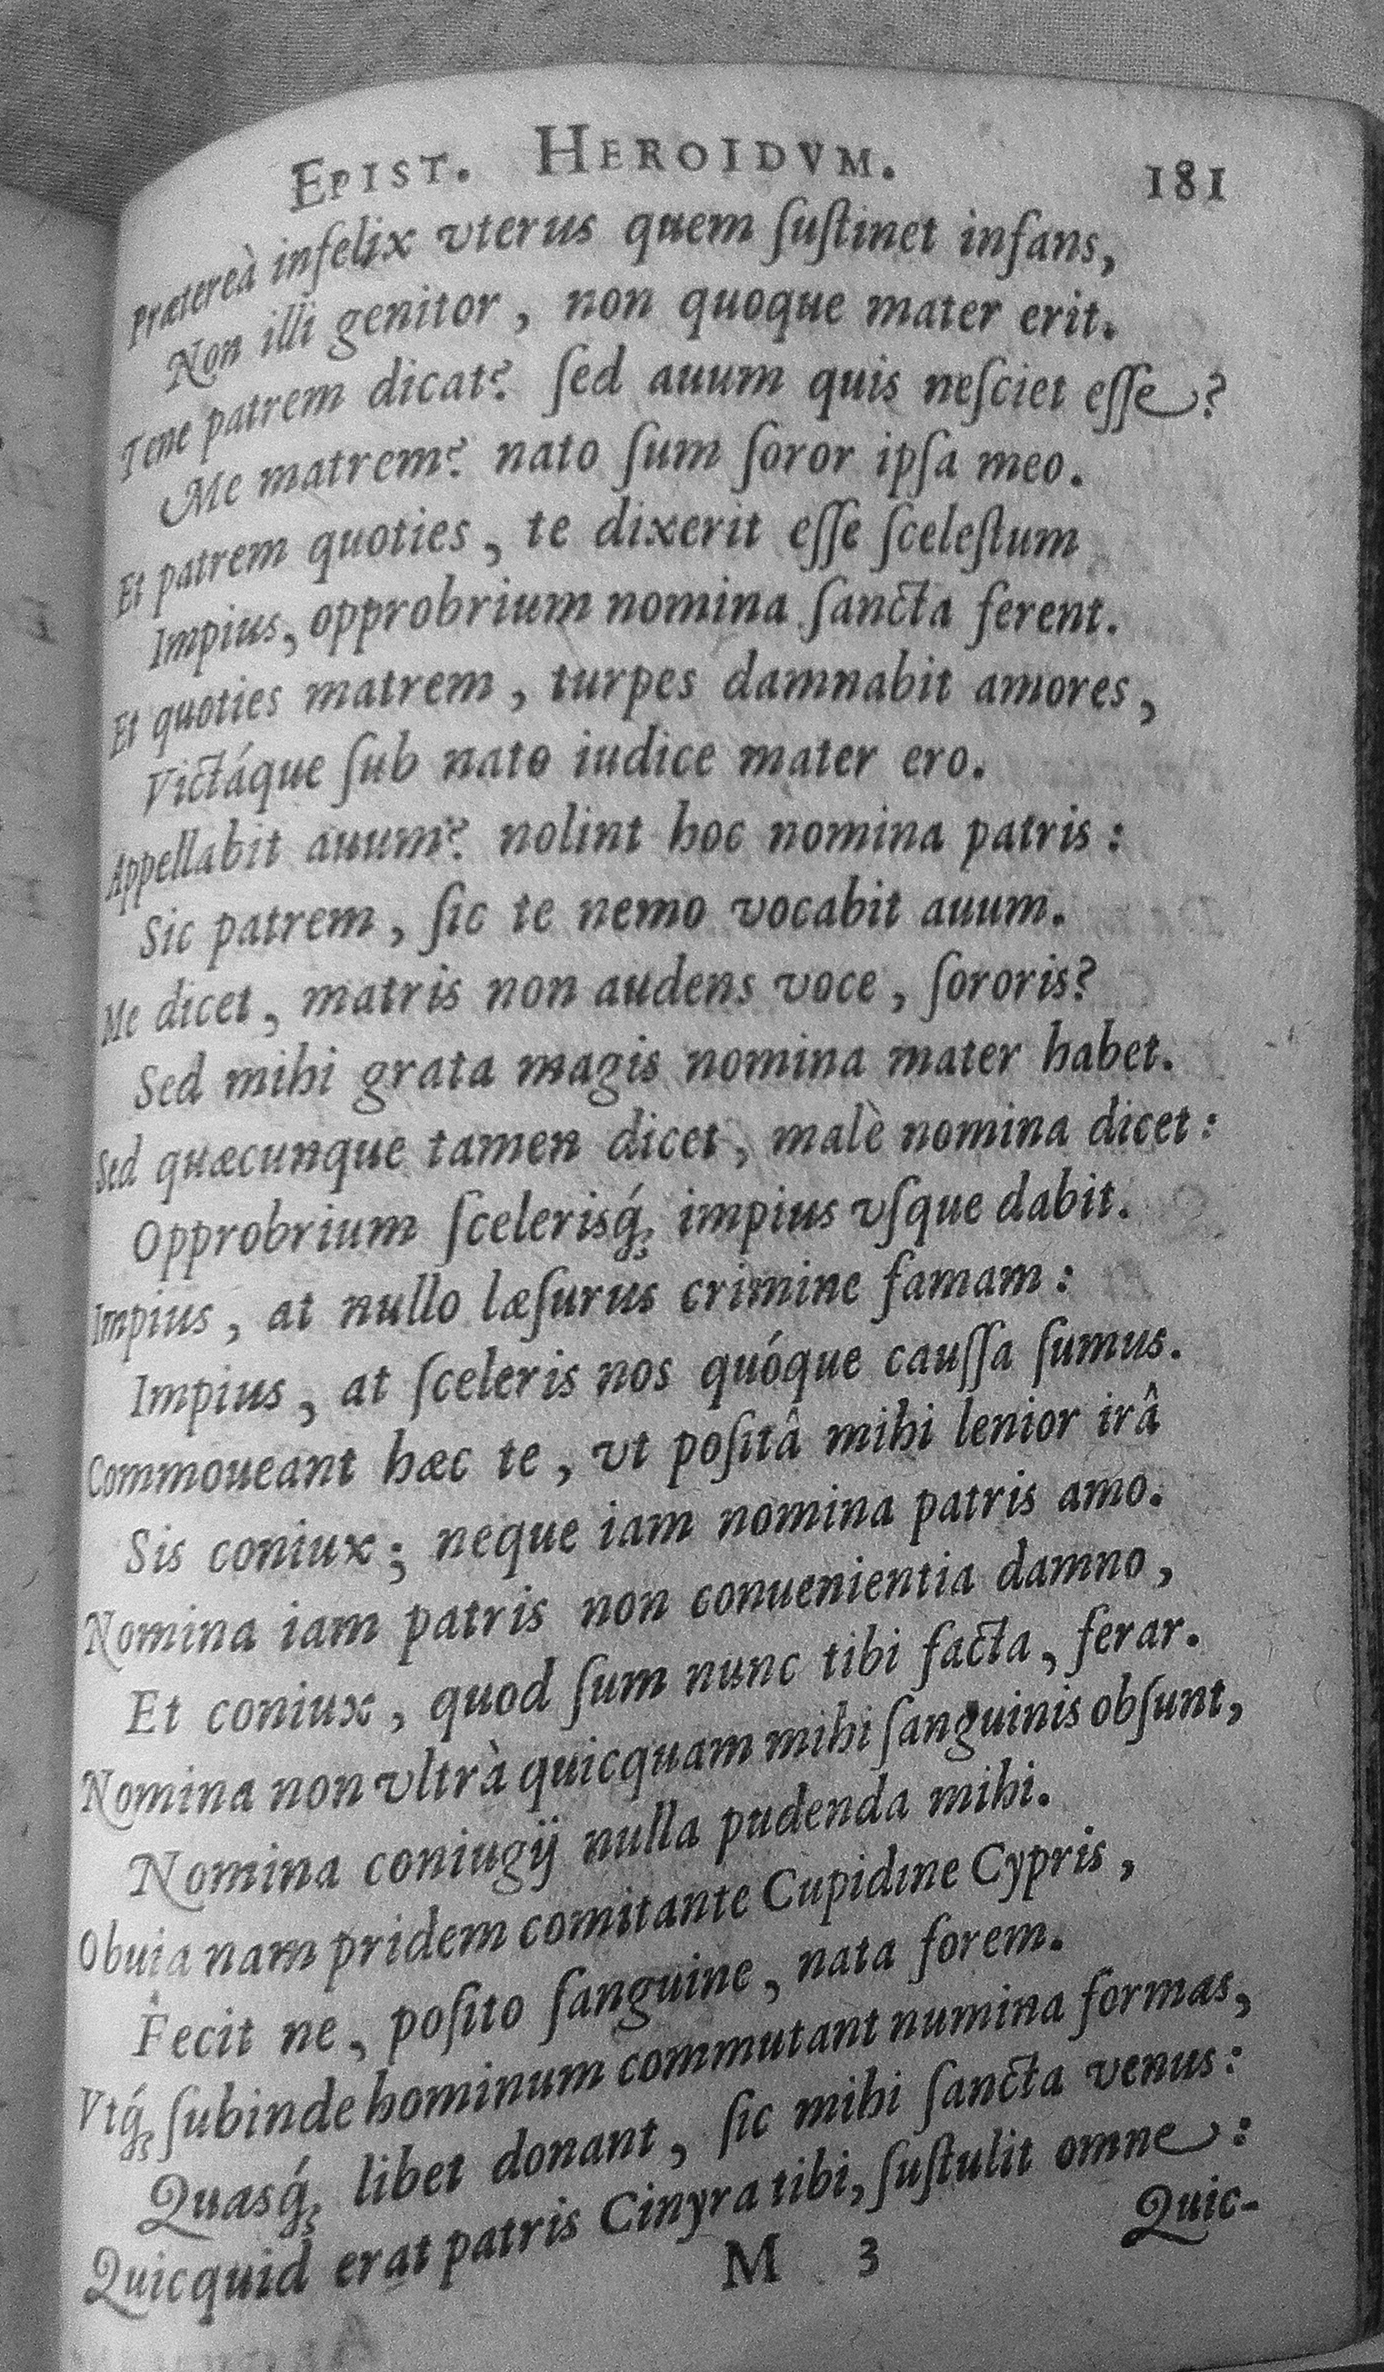 EPIST. HEROIDVM. 181
Prætereà infelix vterus quem ſuſtinet infans,
Non illi genitor, non quoque mater erit.
Tene patrem dicat? ſed auum quis neſciet eſſe?
Me matrem? nato ſum ſoror ipſa meo.
Et patrem quoties, te dixerit eſſe ſceleſtum
Impius, opprobrium nomina ſancta ferent.
Et quoties matrem, turpes damnabit amores,
Victáque ſub nato iudice mater ero.
Appellabit auum? nolint hoc nomina patris:
Sic patrem, ſic te nemo vocabit auum.
Me dicet, matris non audens voce, ſororis?
Sed mihi grata magis nomina mater habet.
Sed quæcunque tamen dicet, malè nomina dicet:
Opprobrium ſceleriſq́; impius vſque dabit.
Impius, at nullo læſurus crimine famam:
Impius, at ſceleris nos quóque cauſſa ſumus.
Commoueant hæc te, vt poſitâ mihi lenior irâ
Sis coniux; neque iam nomina patris amo.
Nomina iam patris non conuenientia damno,
Et coniux, quod ſum nunc tibi facta, ferar.
Nomina non vltrà quicquam mihi ſanguinis obſunt,
Nomina coniugij nulla pudenda mihi.
Obuia nam pridem comitante Cupidine Cypris,
Fecit ne, poſito ſanguine, nata forem.
Vtq́; ſubinde hominum commutant numina formas,
Quasq́; libet donant, ſic mihi ſancta venus:
Quicquid erat patris Cinyra tibi, ſuſtulit omne:
M 3 Quic-